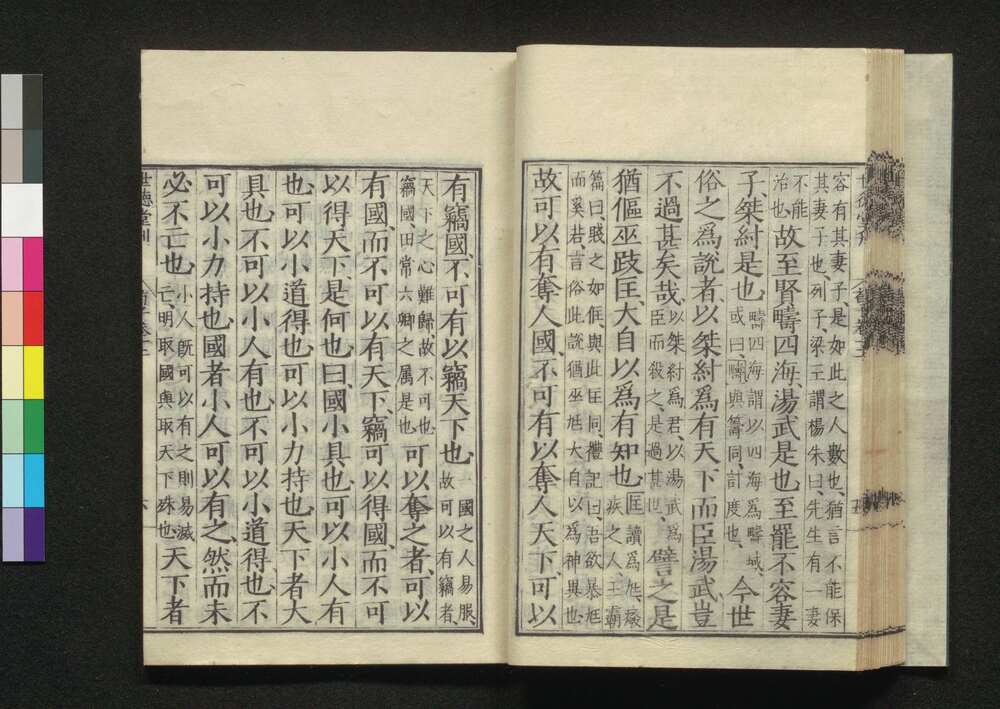 容有其妻子是如此之人數也猶言不能保
其妻子也列子梁王謂楊朱曰先生有一妻
不能
治也
故至賢疇四海湯武是也至罷不容妻
子桀紂是也
疇四海謂以四海爲疇域
或曰疇與籌同計度也
今世
俗之爲說者以桀紂爲有天下而臣湯武豈
不過甚矣哉
以桀紂爲君以湯武爲
臣而殺之是過甚也
譬之是
猶傴巫跛匡大自以爲有知也
匡讀爲尪癈
疾之人王霸
篇曰賤之如尪與此匡同禮記曰吾欲暴尪
而奚若言俗此說猶巫尪大自以爲神異也
故可以有奪人國不可有以奪人天下可以
有竊國不可有以竊天下也
一國之人易服
故可以有竊者
天下之心難歸故不可也
竊國田常六卿之属是也
可以奪之者可以
有國而不可以有天下竊可以得國而不可
以得天下是何也曰國小具也可以小人有
也可以小道得也可以小力持也天下者大
具也不可以小人有也不可以小道得也不
可以小力持也國者小人可以有之然而未
必不亡也
小人既可以有之則易滅
亡明取國與取天下殊也
天下者
世德堂刊
六